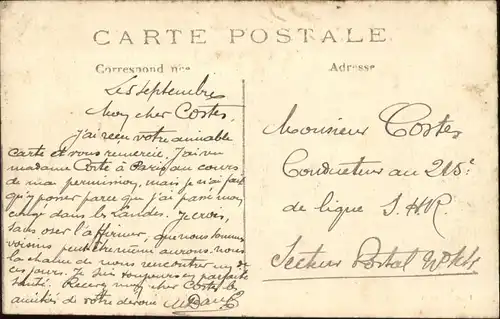 CARTE POSTALE
Correspondance
Adresse
Le 5 septembre
Mon cher Costes,
J'ai reçu votre aimable
carte et vous remercie. J'ai vu
madame Coste à Paris au cours
de ma permission, mais je n'ai fait
qu'y passer parce que j'ai passé mon
congé dans les Landes. Je crois,
sans oser l'affirmer, que nous sommes
voisins peut être aurons-nous
la chance de nous rencontrer un de
ces jours. Je suis toujours en parfaite
santé. Recevez mon cher Costes les
amitiés de votre dévoué
Monsieur Costes
Conducteur au 215e
de ligne S.H.R.
Secteur Postal